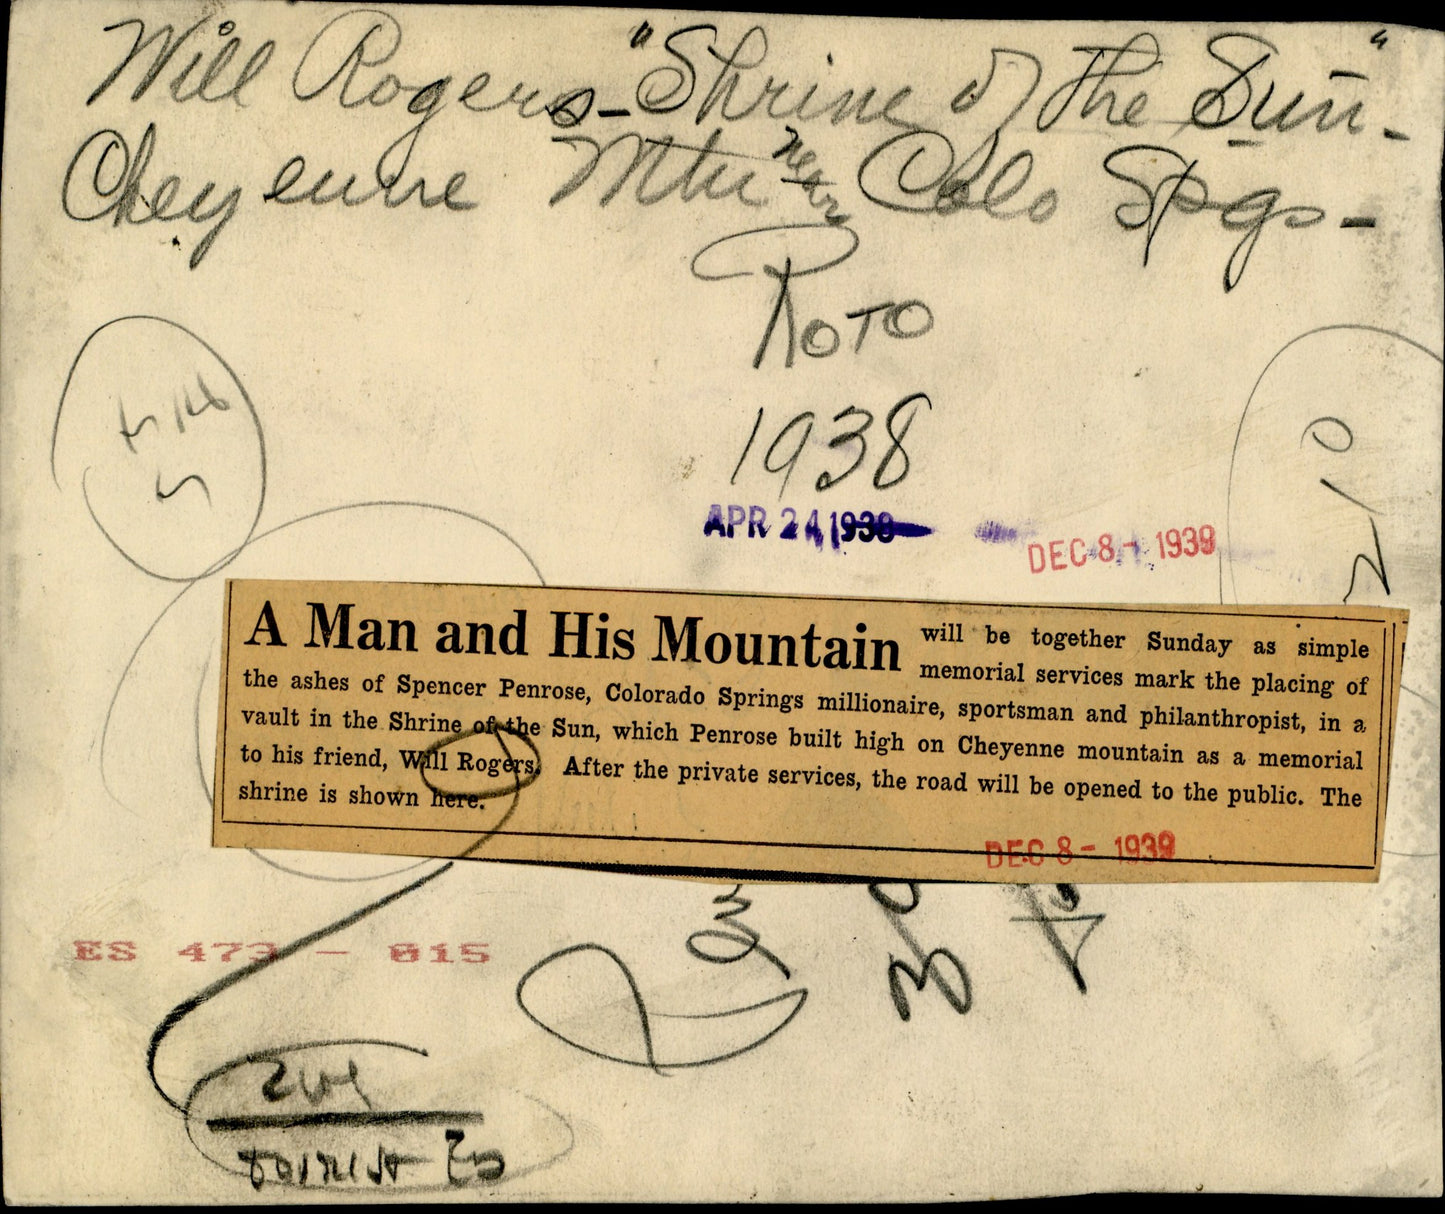 Will Rogers - "Shrine of the Sun" -
Cheyenne Mtn near Colo Spgs -
ROTO
1938
APR 24 1938
DEC 8 - 1939
210
A Man and His Mountain will be together Sunday as simple
memorial services mark the placing of
the ashes of Spencer Penrose, Colorado Springs millionaire, sportsman and philanthropist, in a
vault in the Shrine of the Sun, which Penrose built high on Cheyenne mountain as a memorial
to his friend, Will Rogers. After the private services, the road will be opened to the public. The
shrine is shown here.
DEC 8 - 1939
ES 473 - 015